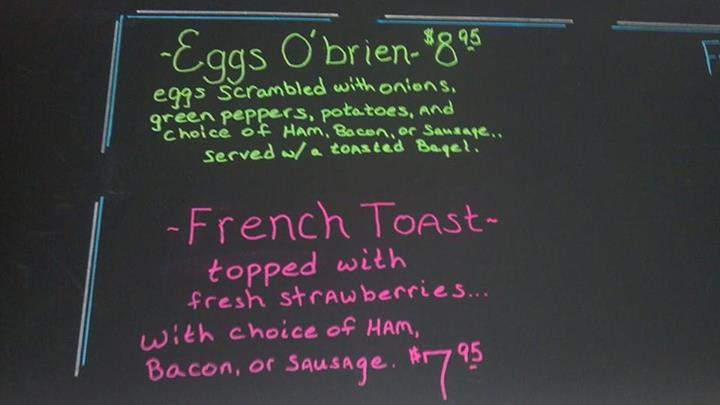 ~Eggs O'brien~ $8.95
eggs scrambled with onions,
green peppers, potatoes, and
choice of Ham, Bacon, or Sausage..
served w/ a toasted Bagel.
~French Toast~
topped with
fresh strawberries...
with choice of Ham,
Bacon, or Sausage. $7.95